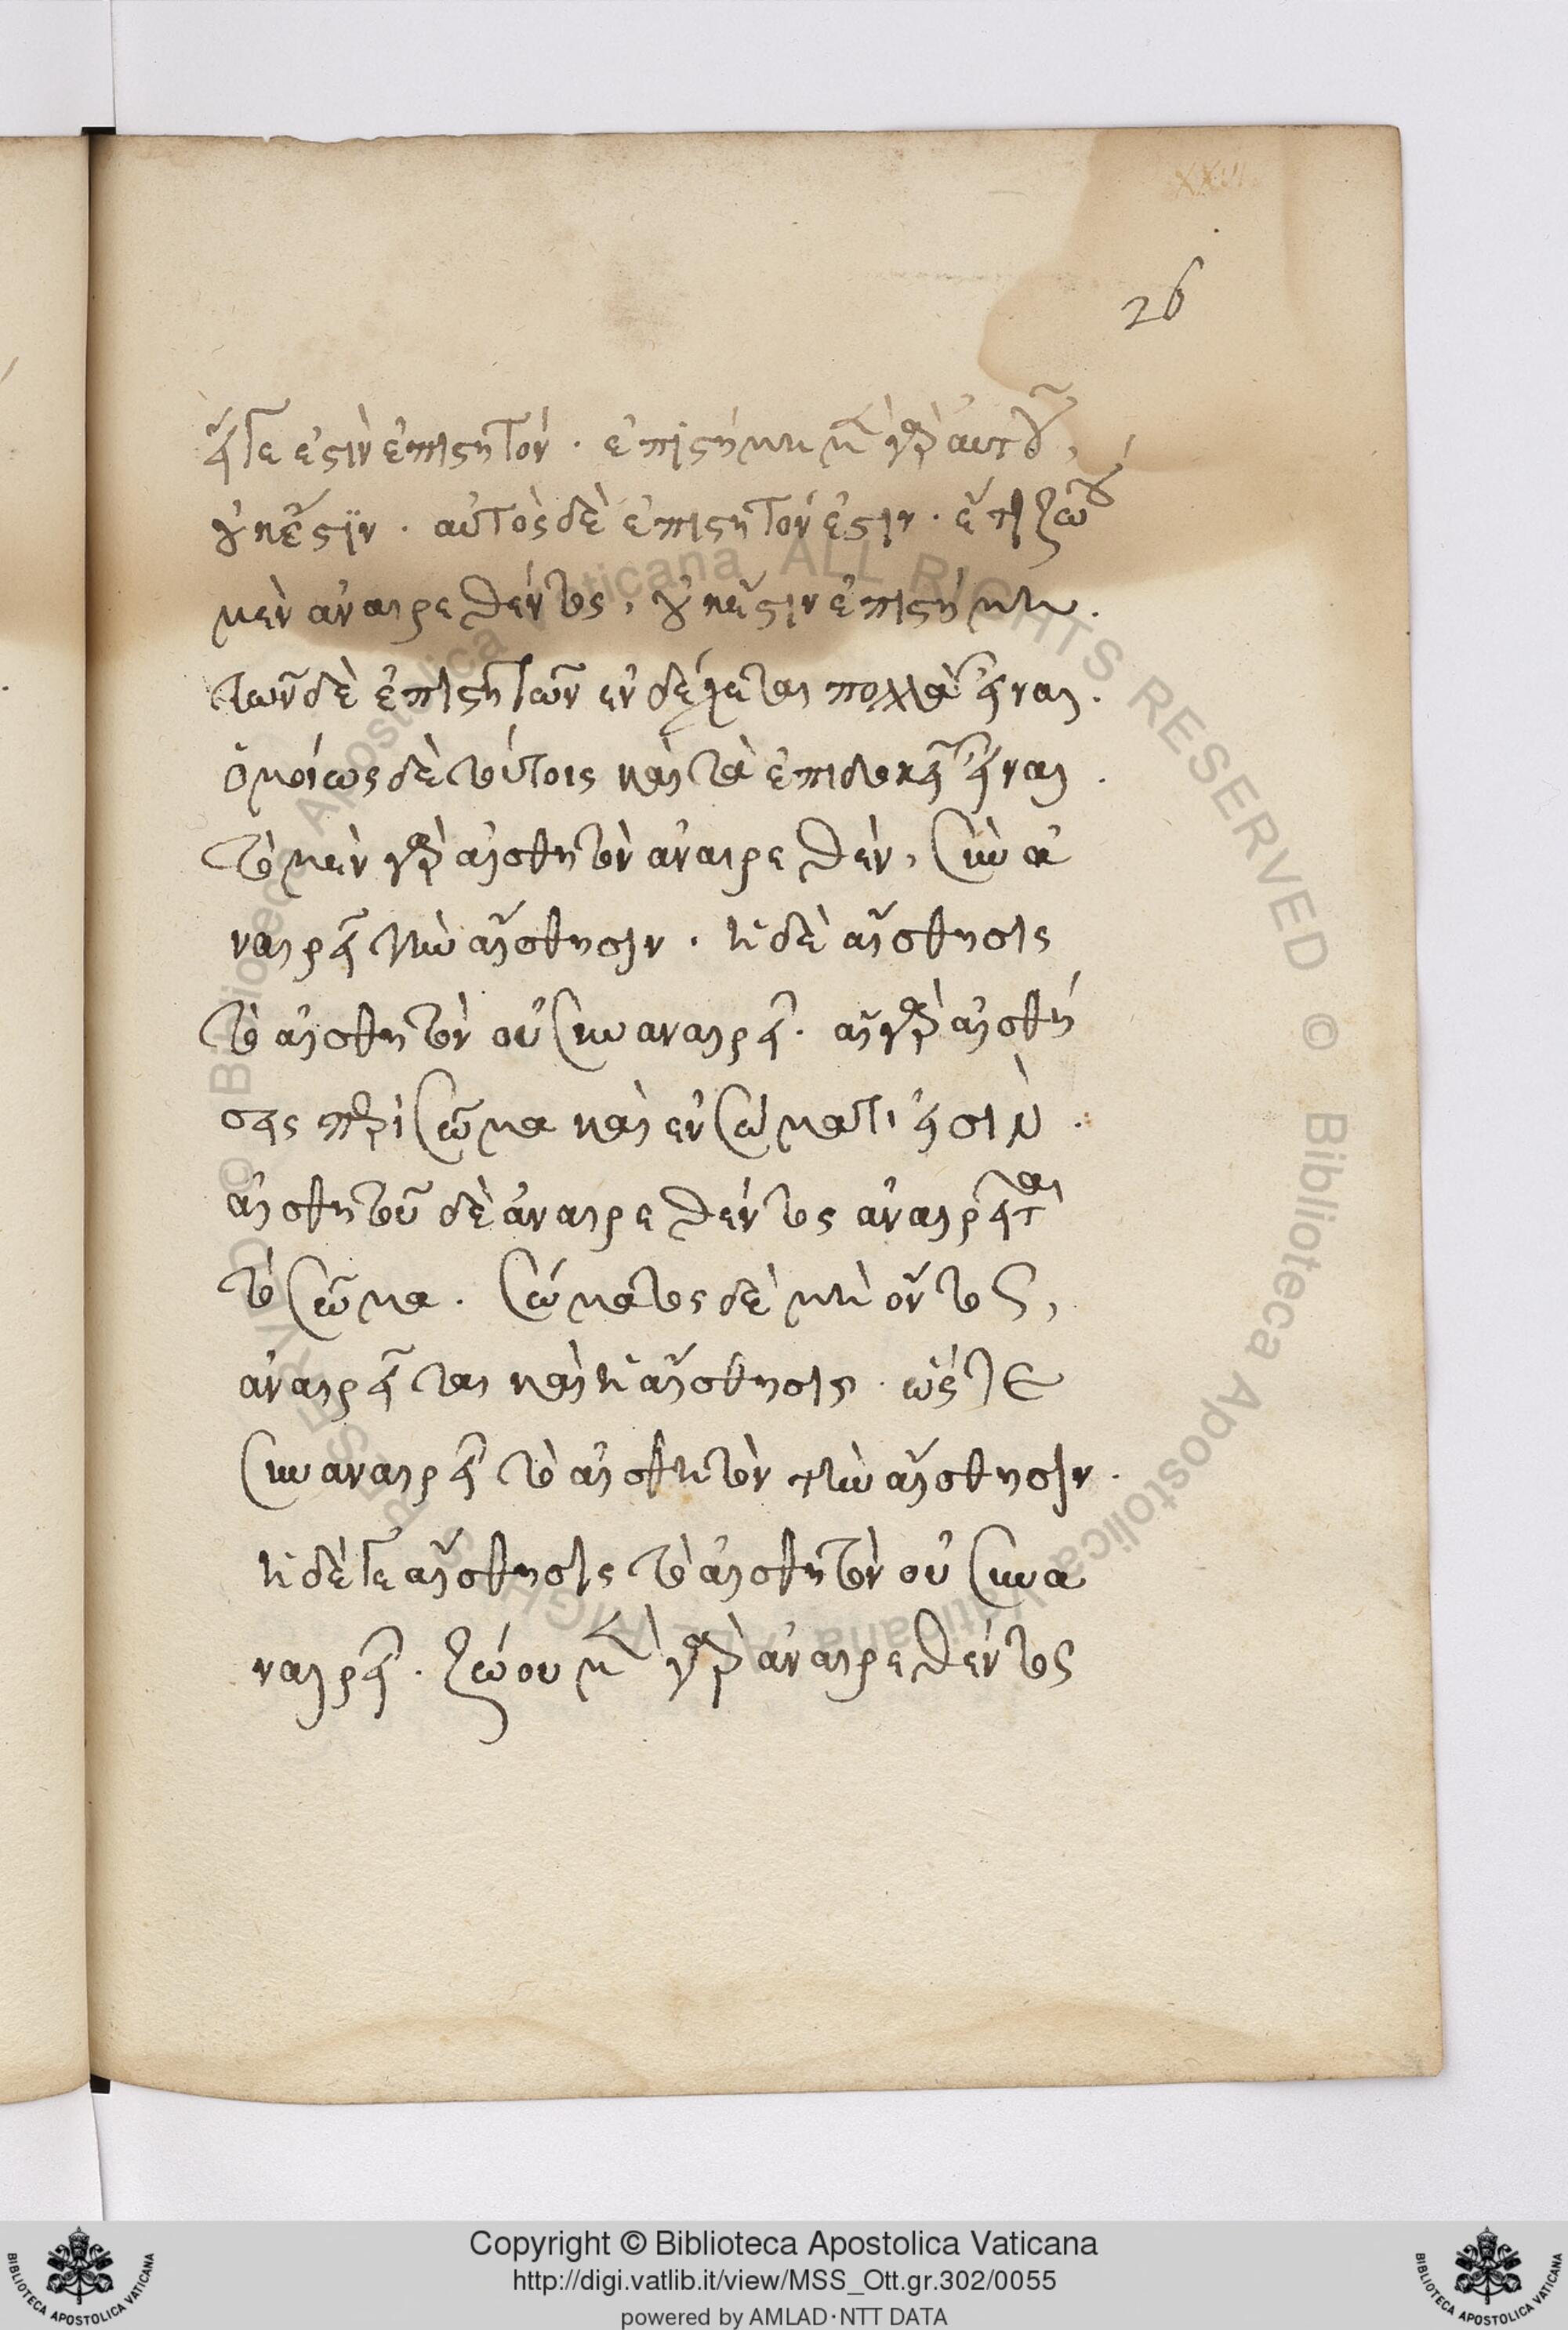 XXVI
26
εἴγε ἐστὶν ἐπιστητόν · ἐπιστήμη μὲν γὰρ αὐτοῦ,
οὐκ ἔστιν · αὐτὸς δὲ ἐπιστητόν ἐστιν · ἔτι ζώου
μὲν ἀναιρεθέντος, οὐκ ἔστιν ἐπιστήμη.
τῶν δὲ ἐπιστητῶν ἐνδέχεται πολλὰ εἶναι.
ὁμοίως δὲ τούτοις καὶ τὰ ἐπὶ δοκεῖ εἶναι.
τὸ μὲν γὰρ αἰσθητὸν ἀναιρεθὲν, συνα
ναιρεῖ τὴν αἴσθησιν · ἡ δὲ αἴσθησις
τὸ αἰσθητὸν οὐ συναναιρεῖ · αἱ γὰρ αἰσθή
σεις περὶ σῶμα καὶ ἐν σώματί εἰσιν ·
αἰσθητοῦ δὲ ἀναιρεθέντος ἀναιρεῖται
τὸ σῶμα · σώματος δὲ μὴ ὄντος,
ἀναιρεῖται καὶ ἡ αἴσθησις · ὥστε
συναναιρεῖ τὸ αἰσθητὸν τὴν αἴσθησιν ·
ἡ δέ γε αἴσθησις τὸ αἰσθητὸν οὐ συνα
ναιρεῖ · ζώου μὲν γὰρ ἀναιρεθέντος
Copyright © Biblioteca Apostolica Vaticana
http://digi.vatlib.it/view/MSS_Ott.gr.302/0055
powered by AMLAD·NTT DATA